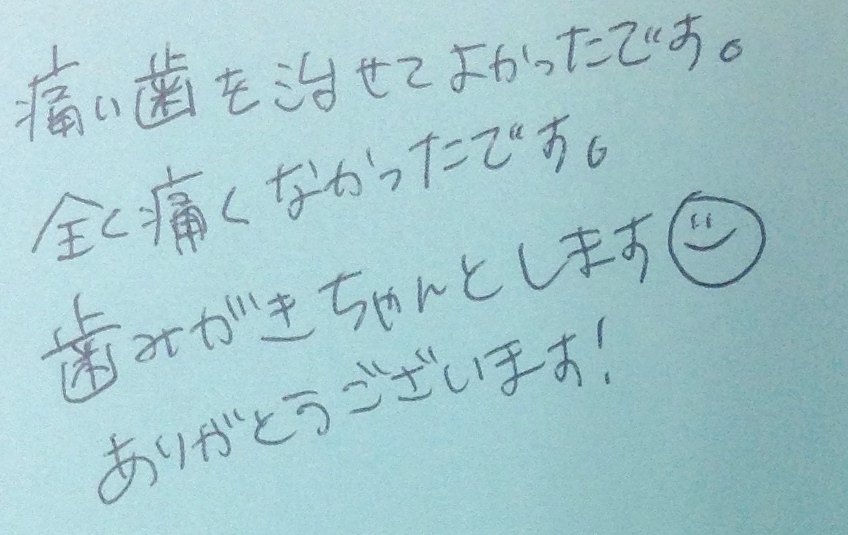 痛い歯を治せてよかったです。
全く痛くなかったです。
歯みがきちゃんとします
ありがとうございます!